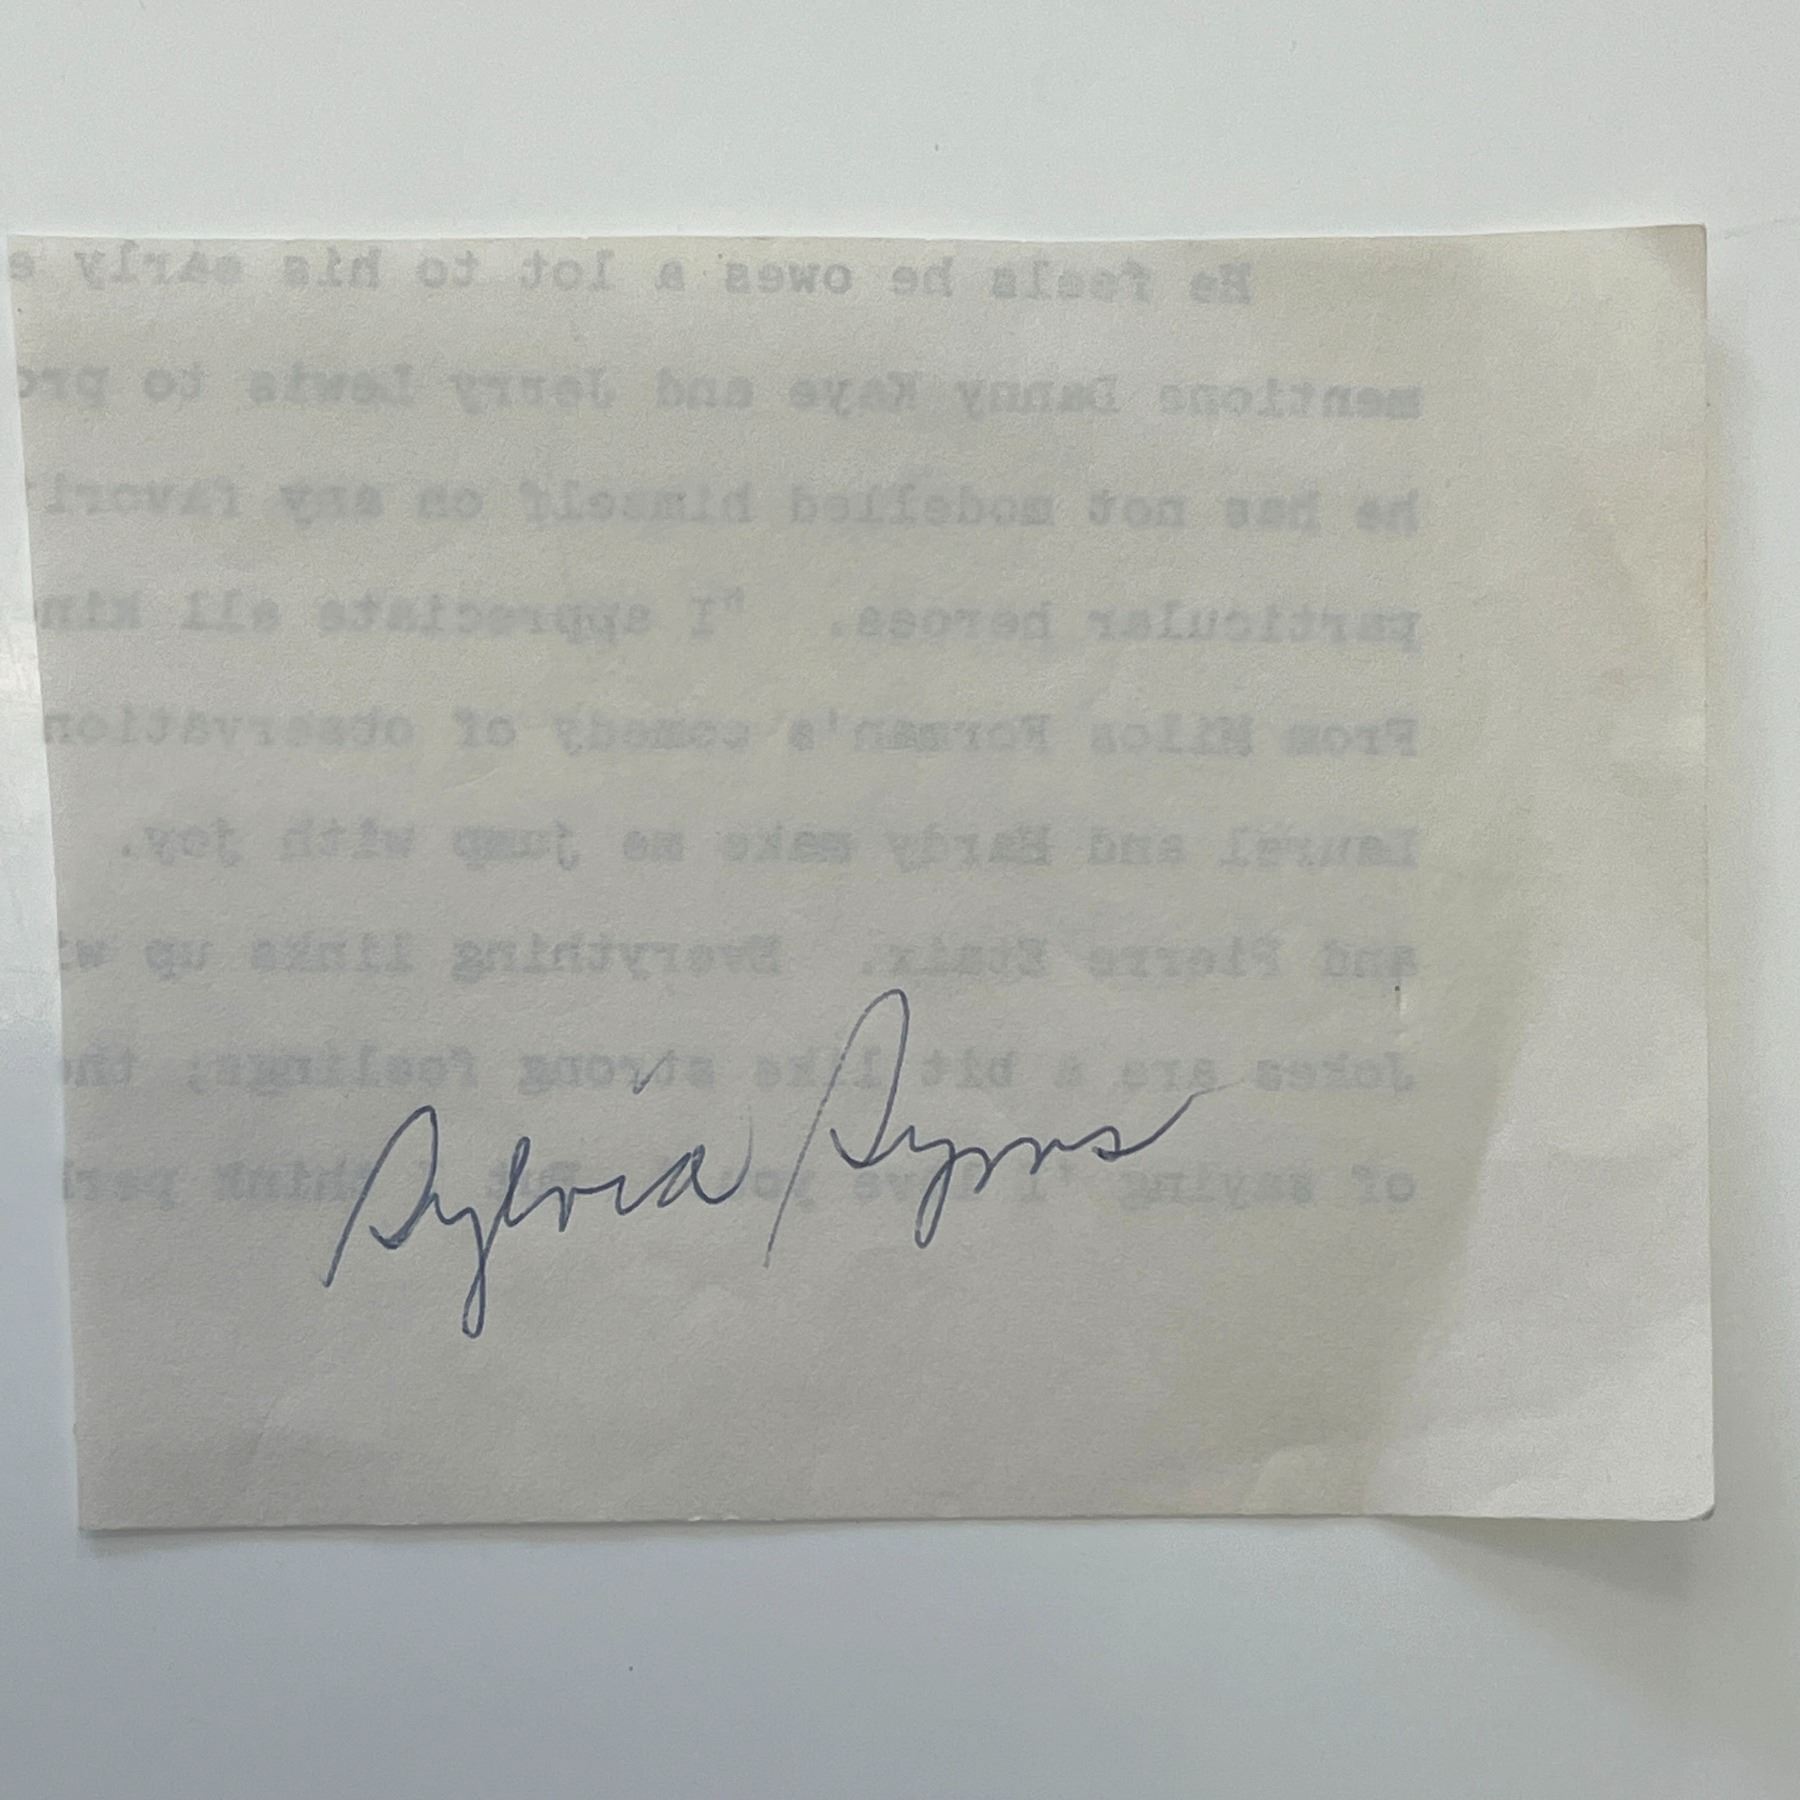 He feels he owes a lot to his early e
mentions Danny Kaye and Jerry Lewis to pro
he has not modelled himself on any favorit
particular heroes. "I appreciate all kin
From Milos Forman's comedy of observation
Laurel and Hardy make me jump with joy.
and Pierre Etaix. Everything links up wi
Jokes are a bit like strong feelings; the
of saying 'I love you'. But I think perh
Sylvia Syms